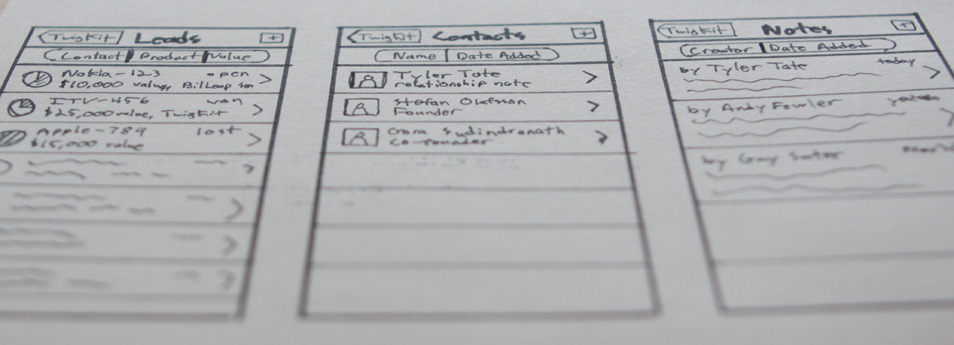 TwigKit Leads +
Contact Product Value
Nokia-123 open
$10,000 value,
ITV-456 won
$25,000 value, TwigKit
Apple-789 lost
$15,000 value
TwigKit Contacts +
Name Date Added
Tyler Tate
relationship note
Stefan Olafsson
Founder
Sudindranath
co-founder
TwigKit Notes +
Creator Date Added
by Tyler Tate today
by Andy Fowler
by